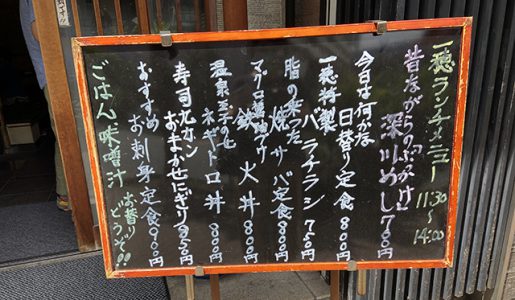 一穂ランチメニュー 11:30〜14:00
昔ながらの「ぶっかけ」
深川めし 780円
今日は何かな
日替り定食 800円
一穂特製
バラチラシ 750円
脂の乗った
焼サバ定食 800円
マグロ
鉄火丼 800円
温泉玉子のせ
ネギトロ丼 800円
寿司
おまかせにぎり 850円
おすすめ
お刺身定食 800円
ごはん 味噌汁
お替り
どうぞ!!